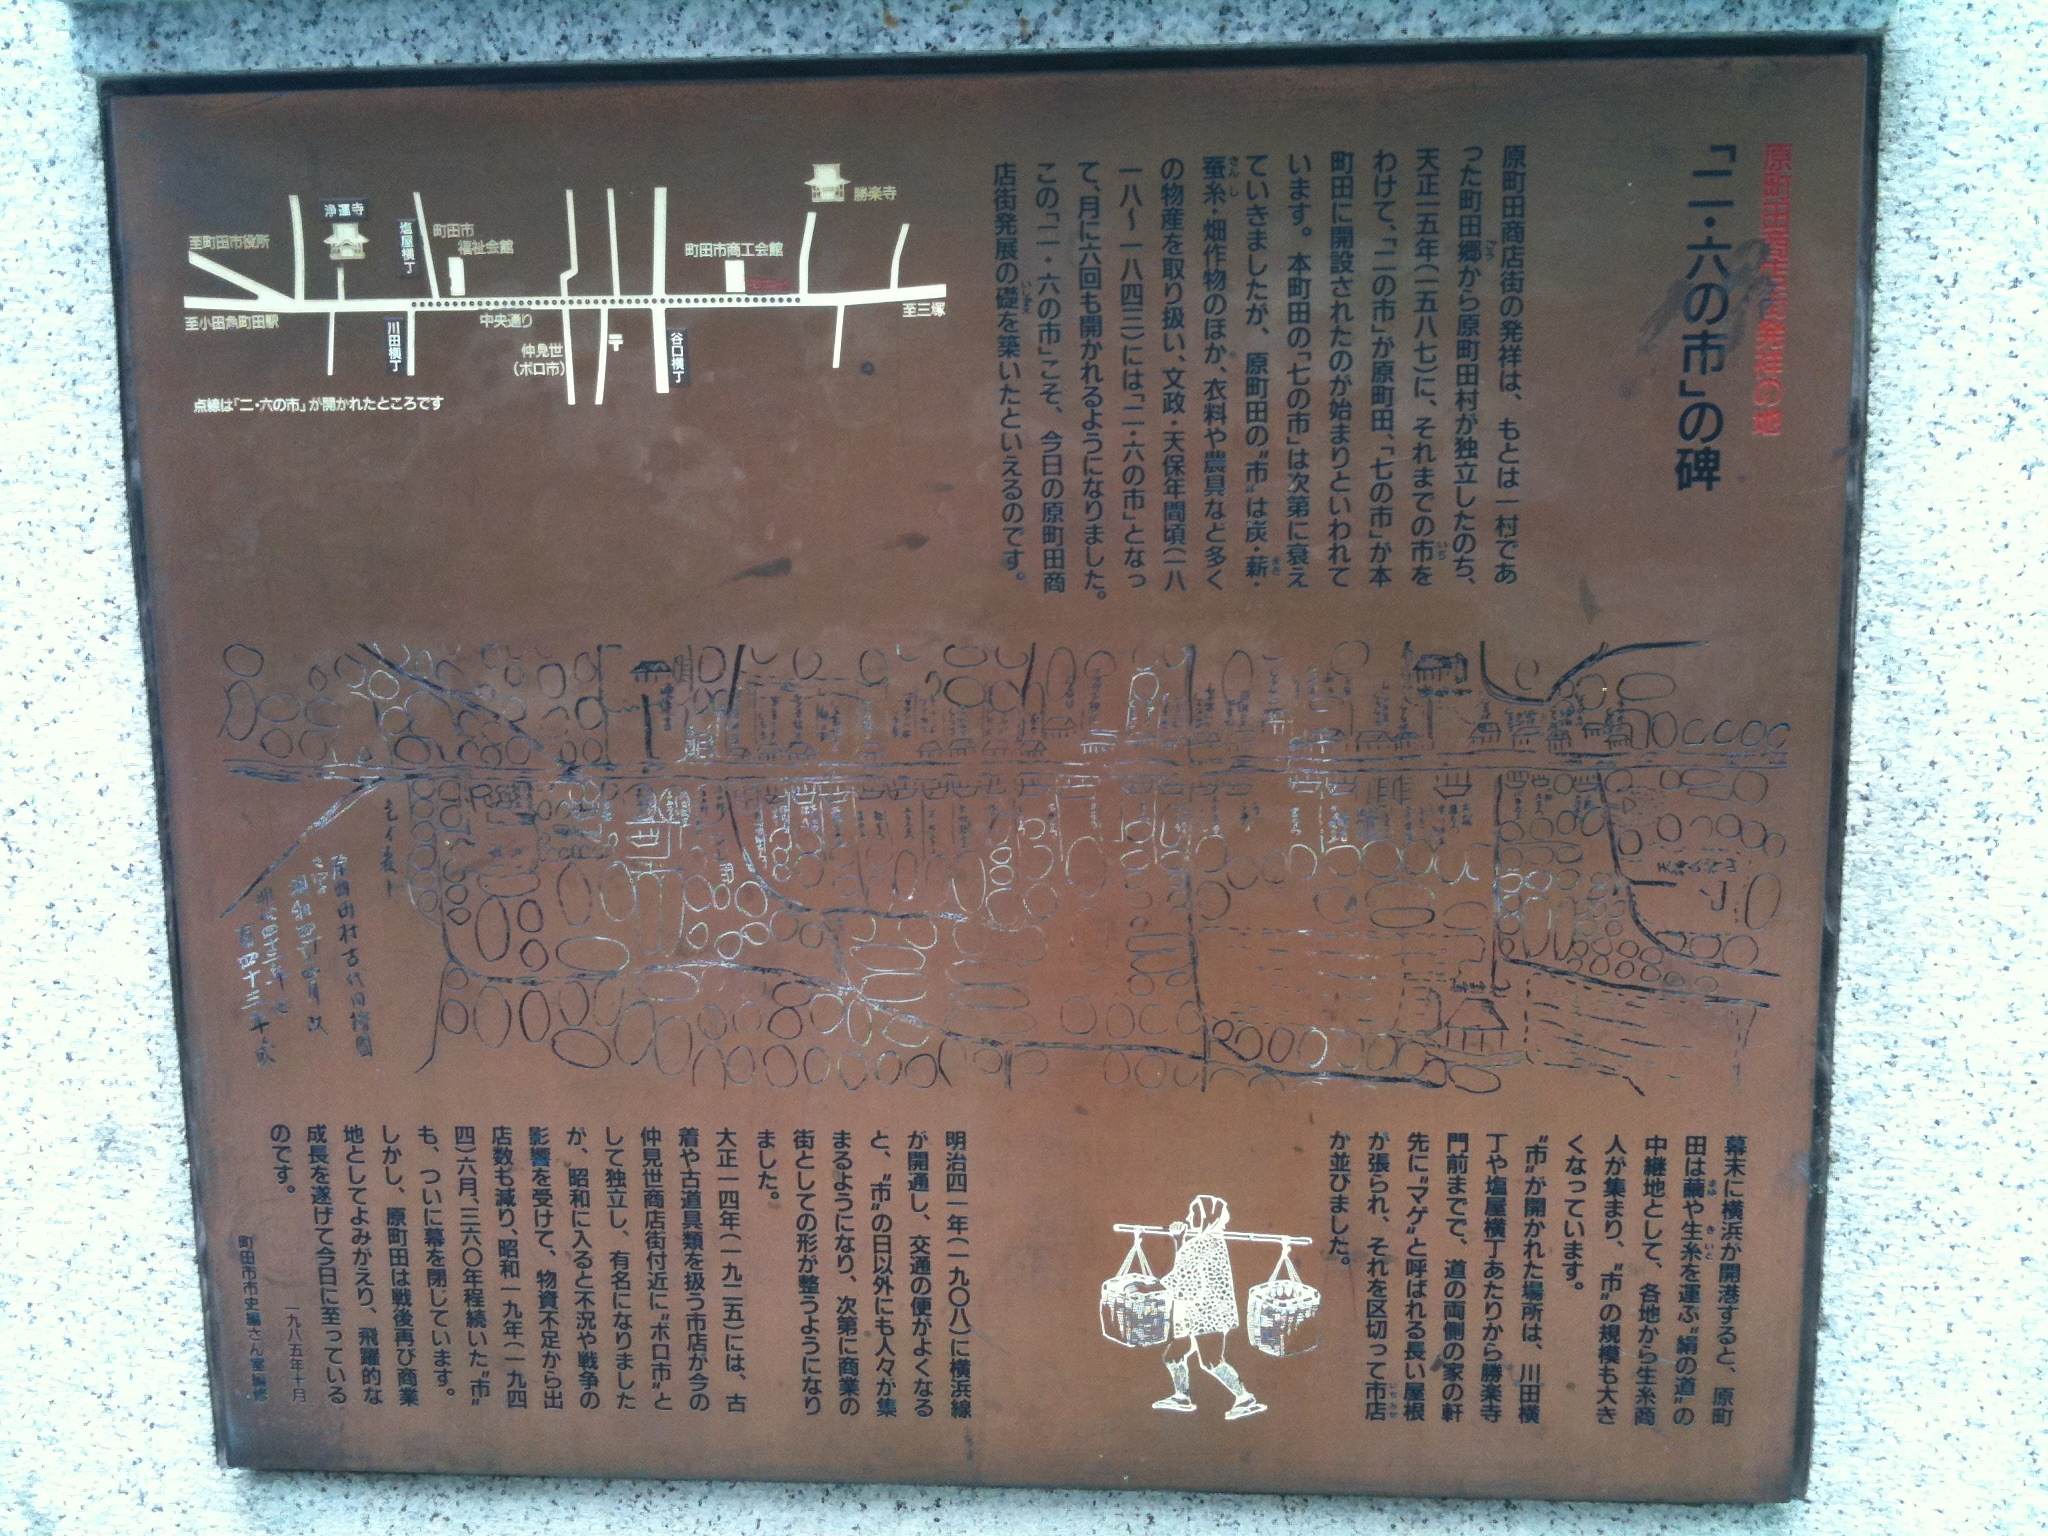 原町田商店街発祥の地
「二・六の市」の碑
原町田商店街の発祥は、もとは一村であ
った町田郷から原町田村が独立したのち、
天正一五年(一五八七)に、それまでの市を
わけて、「二の市」が原町田、「七の市」が本
町田に開設されたのが始まりといわれて
います。本町田の「七の市」は次第に衰え
ていきましたが、原町田の“市”は炭・薪・
蚕糸・畑作物のほか、衣料や農具など多く
の物産を取り扱い、文政・天保年間頃(一八
一八〜一八四三)には「二・六の市」となっ
て、月に六回も開かれるようになりました。
この「二・六の市」こそ、今日の原町田商
店街発展の礎を築いたといえるのです。
勝楽寺
浄運寺
至町田市役所
塩屋横丁
町田市
福祉会館
町田市商工会館
至三塚
至小田急町田駅
川田横丁
中央通り
仲見世
(ボロ市)
〒
谷口横丁
点線は「二・六の市」が開かれたところです
原町田村古代の繪図
幕末に横浜が開港すると、原町
田は繭や生糸を運ぶ“絹の道”の
中継地として、各地から生糸商
人が集まり、“市”の規模も大き
くなっています。
“市”が開かれた場所は、川田横
丁や塩屋横丁あたりから勝楽寺
門前までで、道の両側の家の軒
先に“マゲ”と呼ばれる長い屋根
が張られ、それを区切って市店
か並びました。
明治四一年(一九〇八)に横浜線
が開通し、交通の便がよくなる
と、“市”の日以外にも人々が集
まるようになり、次第に商業の
街としての形が整うようになり
ました。
大正一四年(一九二五)には、古
着や古道具類を扱う市店が今の
仲見世商店街付近に“ボロ市”と
して独立し、有名になりました
が、昭和に入ると不況や戦争の
影響を受けて、物資不足から出
店数も減り、昭和一九年(一九四
四)六月、三六〇年程続いた“市”
も、ついに幕を閉じています。
しかし、原町田は戦後再び商業
地としてよみがえり、飛躍的な
成長を遂げて今日に至っている
のです。
一九八五年十月
町田市史編さん室編修